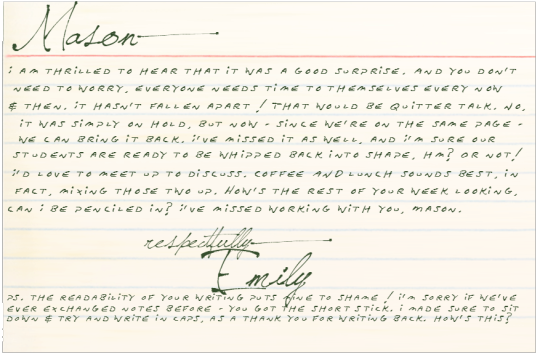 Mason
i AM THRILLED TO HEAR THAT IT WAS A GOOD SURPRISE. AND YOU DON'T
NEED TO WORRY. EVERYONE NEEDS TIME TO THEMSELVES EVERY NOW
& THEN. IT HASN'T FALLEN APART! THAT WOULD BE QUITTER TALK. NO,
IT WAS SIMPLY ON HOLD, BUT NOW - SINCE WE'RE ON THE SAME PAGE -
WE CAN BRING IT BACK. i'VE MISSED IT AS WELL, AND i'M SURE OUR
STUDENTS ARE READY TO BE WHIPPED BACK INTO SHAPE, HM? OR NOT!
i'D LOVE TO MEET UP TO DISCUSS. COFFEE AND LUNCH SOUNDS BEST, IN
FACT, MIXING THOSE TWO UP. HOW'S THE REST OF YOUR WEEK LOOKING,
CAN i BE PENCILED IN? i'VE MISSED WORKING WITH YOU, MASON.
respectfully
Emily
PS. THE READABILITY OF YOUR WRITING PUTS MINE TO SHAME! i'M SORRY IF WE'VE
EVER EXCHANGED NOTES BEFORE - YOU GOT THE SHORT STICK. i MADE SURE TO SIT
DOWN & TRY AND WRITE IN CAPS, AS A THANK YOU FOR WRITING BACK. HOW'S THIS?